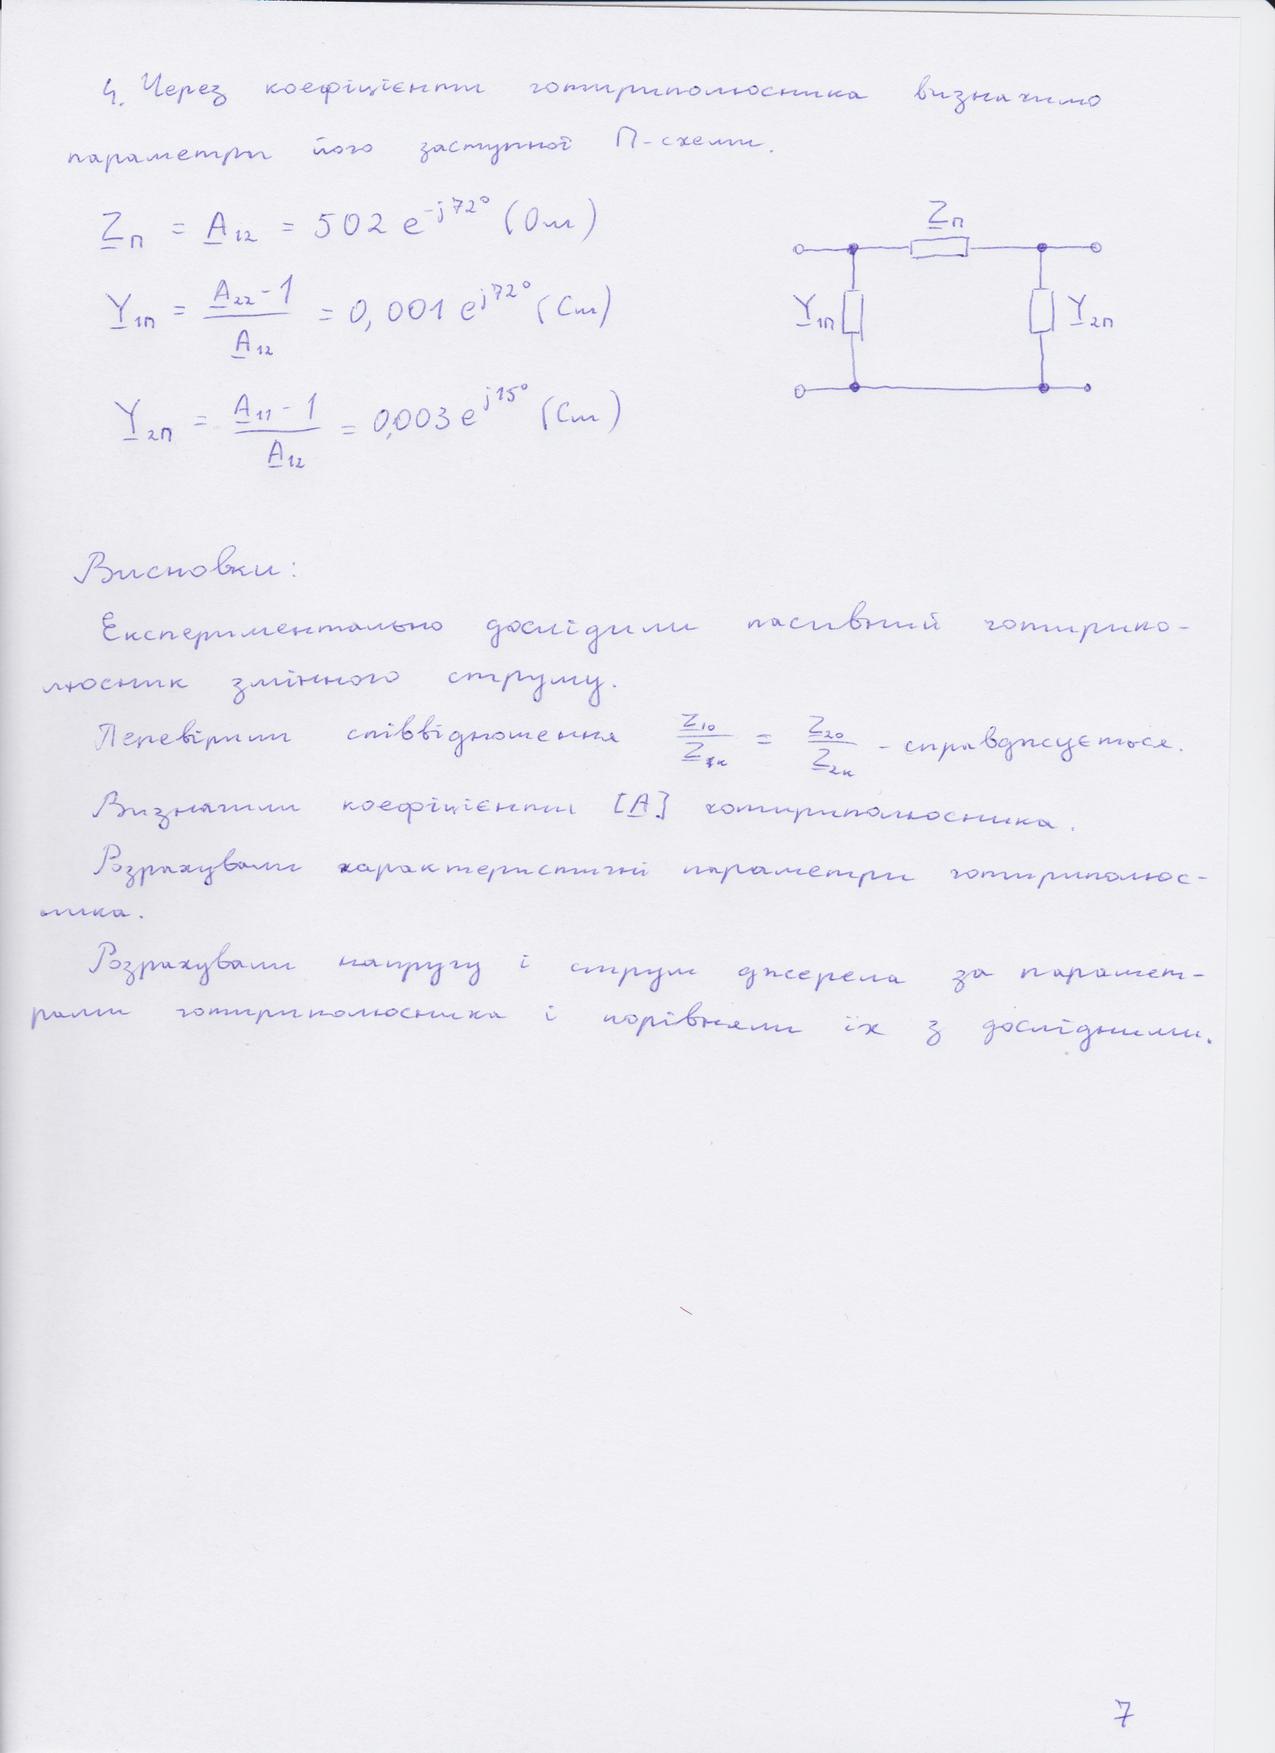 4. Через коефіцієнти чотириполюсника визначимо
параметри його заступної П-схеми.
Z̲п = A̲12 = 502 e^-j72° (Ом)
Y̲1п = (A̲22 - 1) / A̲12 = 0,001 e^j72° (См)
Y̲2п = (A̲11 - 1) / A̲12 = 0,003 e^j15° (См)
Z̲п
Y̲1п
Y̲2п
Висновки:
Експериментально дослідили пасивний чотирипо-
люсник змінного струму.
Перевірили співвідношення Z̲10 / Z̲1к = Z̲20 / Z̲2к - справджується.
Визначили коефіцієнти [A̲] чотириполюсника.
Розрахували характеристичні параметри чотириполюс-
ника.
Розрахували напругу і струм джерела за парамет-
рами чотириполюсника і порівняли їх з дослідними.
7